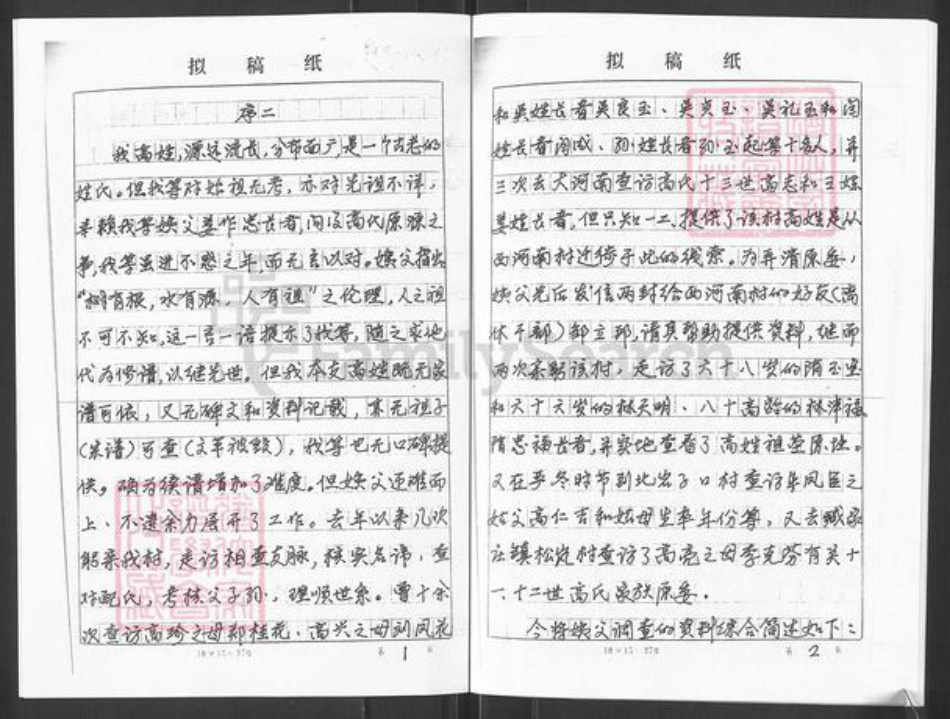 拟 稿 纸
序二
我高姓,源远流长,分布面广,是一个古老的
姓氏。但我等对始祖无考,亦对先祖不详,
幸赖我等姨父姜作忠长者,问及高氏原源之
事,我等虽进不惑之年,而无言以对。姨父指出
“树有根,水有源,人有祖”之伦理,人之祖
不可不知,这一言一语提示了我等,随之求他
代为修谱,以继先世。但我本支高姓既无家
谱可依,又无碑文和资料记载,亦无祖子
(宗谱)可查(文革被毁),我等也无口碑提
供。确为续谱增加了难度。但姨父还难而
上、不遗余力展开了工作。去年以来几次
躬亲我村,走访相查支脉,核实名讳,查
对配氏,考核父子孙,理顺世系。曾十余
次查访高珍之母郑桂花、高兴之母刘凤花
18×15=270
第 1 页
拟 稿 纸
和吴姓长者吴良玉、吴贞玉、吴礼玉和阎
姓长者阎成、孙姓长者孙玉起等十名人,并
三次去大河南查访高氏十三世高志和王姓
姜姓长者,但只知一二,提供了该村高姓是从
西河南村迁徙于此的线索。为弄清原委,
姨父先后发信两封给西河南村的好友(离
休干部)邹立邦,请其帮助提供资料,继而
两次亲躬该村,走访了六十八岁的隋玉坤
和六十六岁的林天明、八十高龄的林津福
隋忠福长者,并实地查看了高姓祖茔原址。
又在严冬时节到北岩子口村查访牟凤臣之
姑父高仁吉和姑母生卒年份等,又去臧家
庄镇松岚村查访了高亮之母李克芬有关十
一、十二世高氏家族原委。
今将姨父调查的资料综合简述如下:
18×15=270
第 2 页
FamilySearch